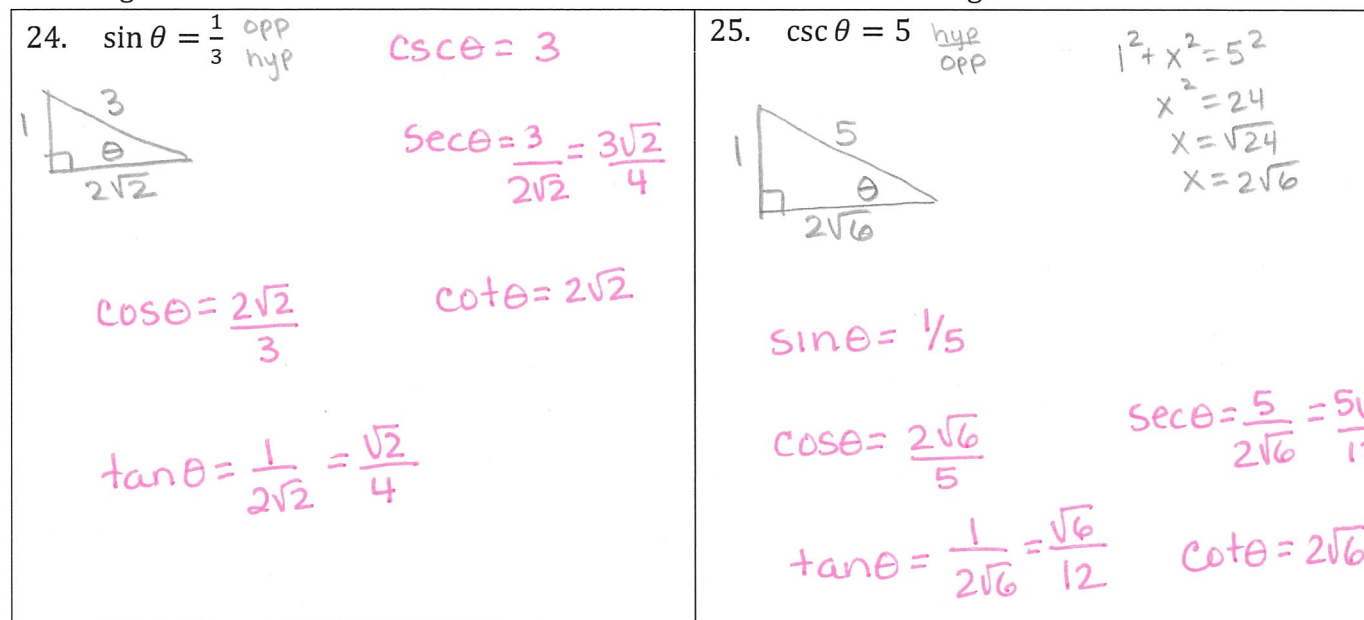 24. sin θ = 1/3 opp hyp
cscθ = 3
1 3 θ 2√2
secθ = 3/2√2 = 3√2/4
cosθ = 2√2/3
cotθ = 2√2
tanθ = 1/2√2 = √2/4
25. csc θ = 5 hyp/opp
1² + x² = 5²
x² = 24
x = √24
x = 2√6
1 5 θ 2√6
sinθ = 1/5
cosθ = 2√6/5
secθ = 5/2√6 =
tanθ = 1/2√6 = √6/12
cotθ = 2√6